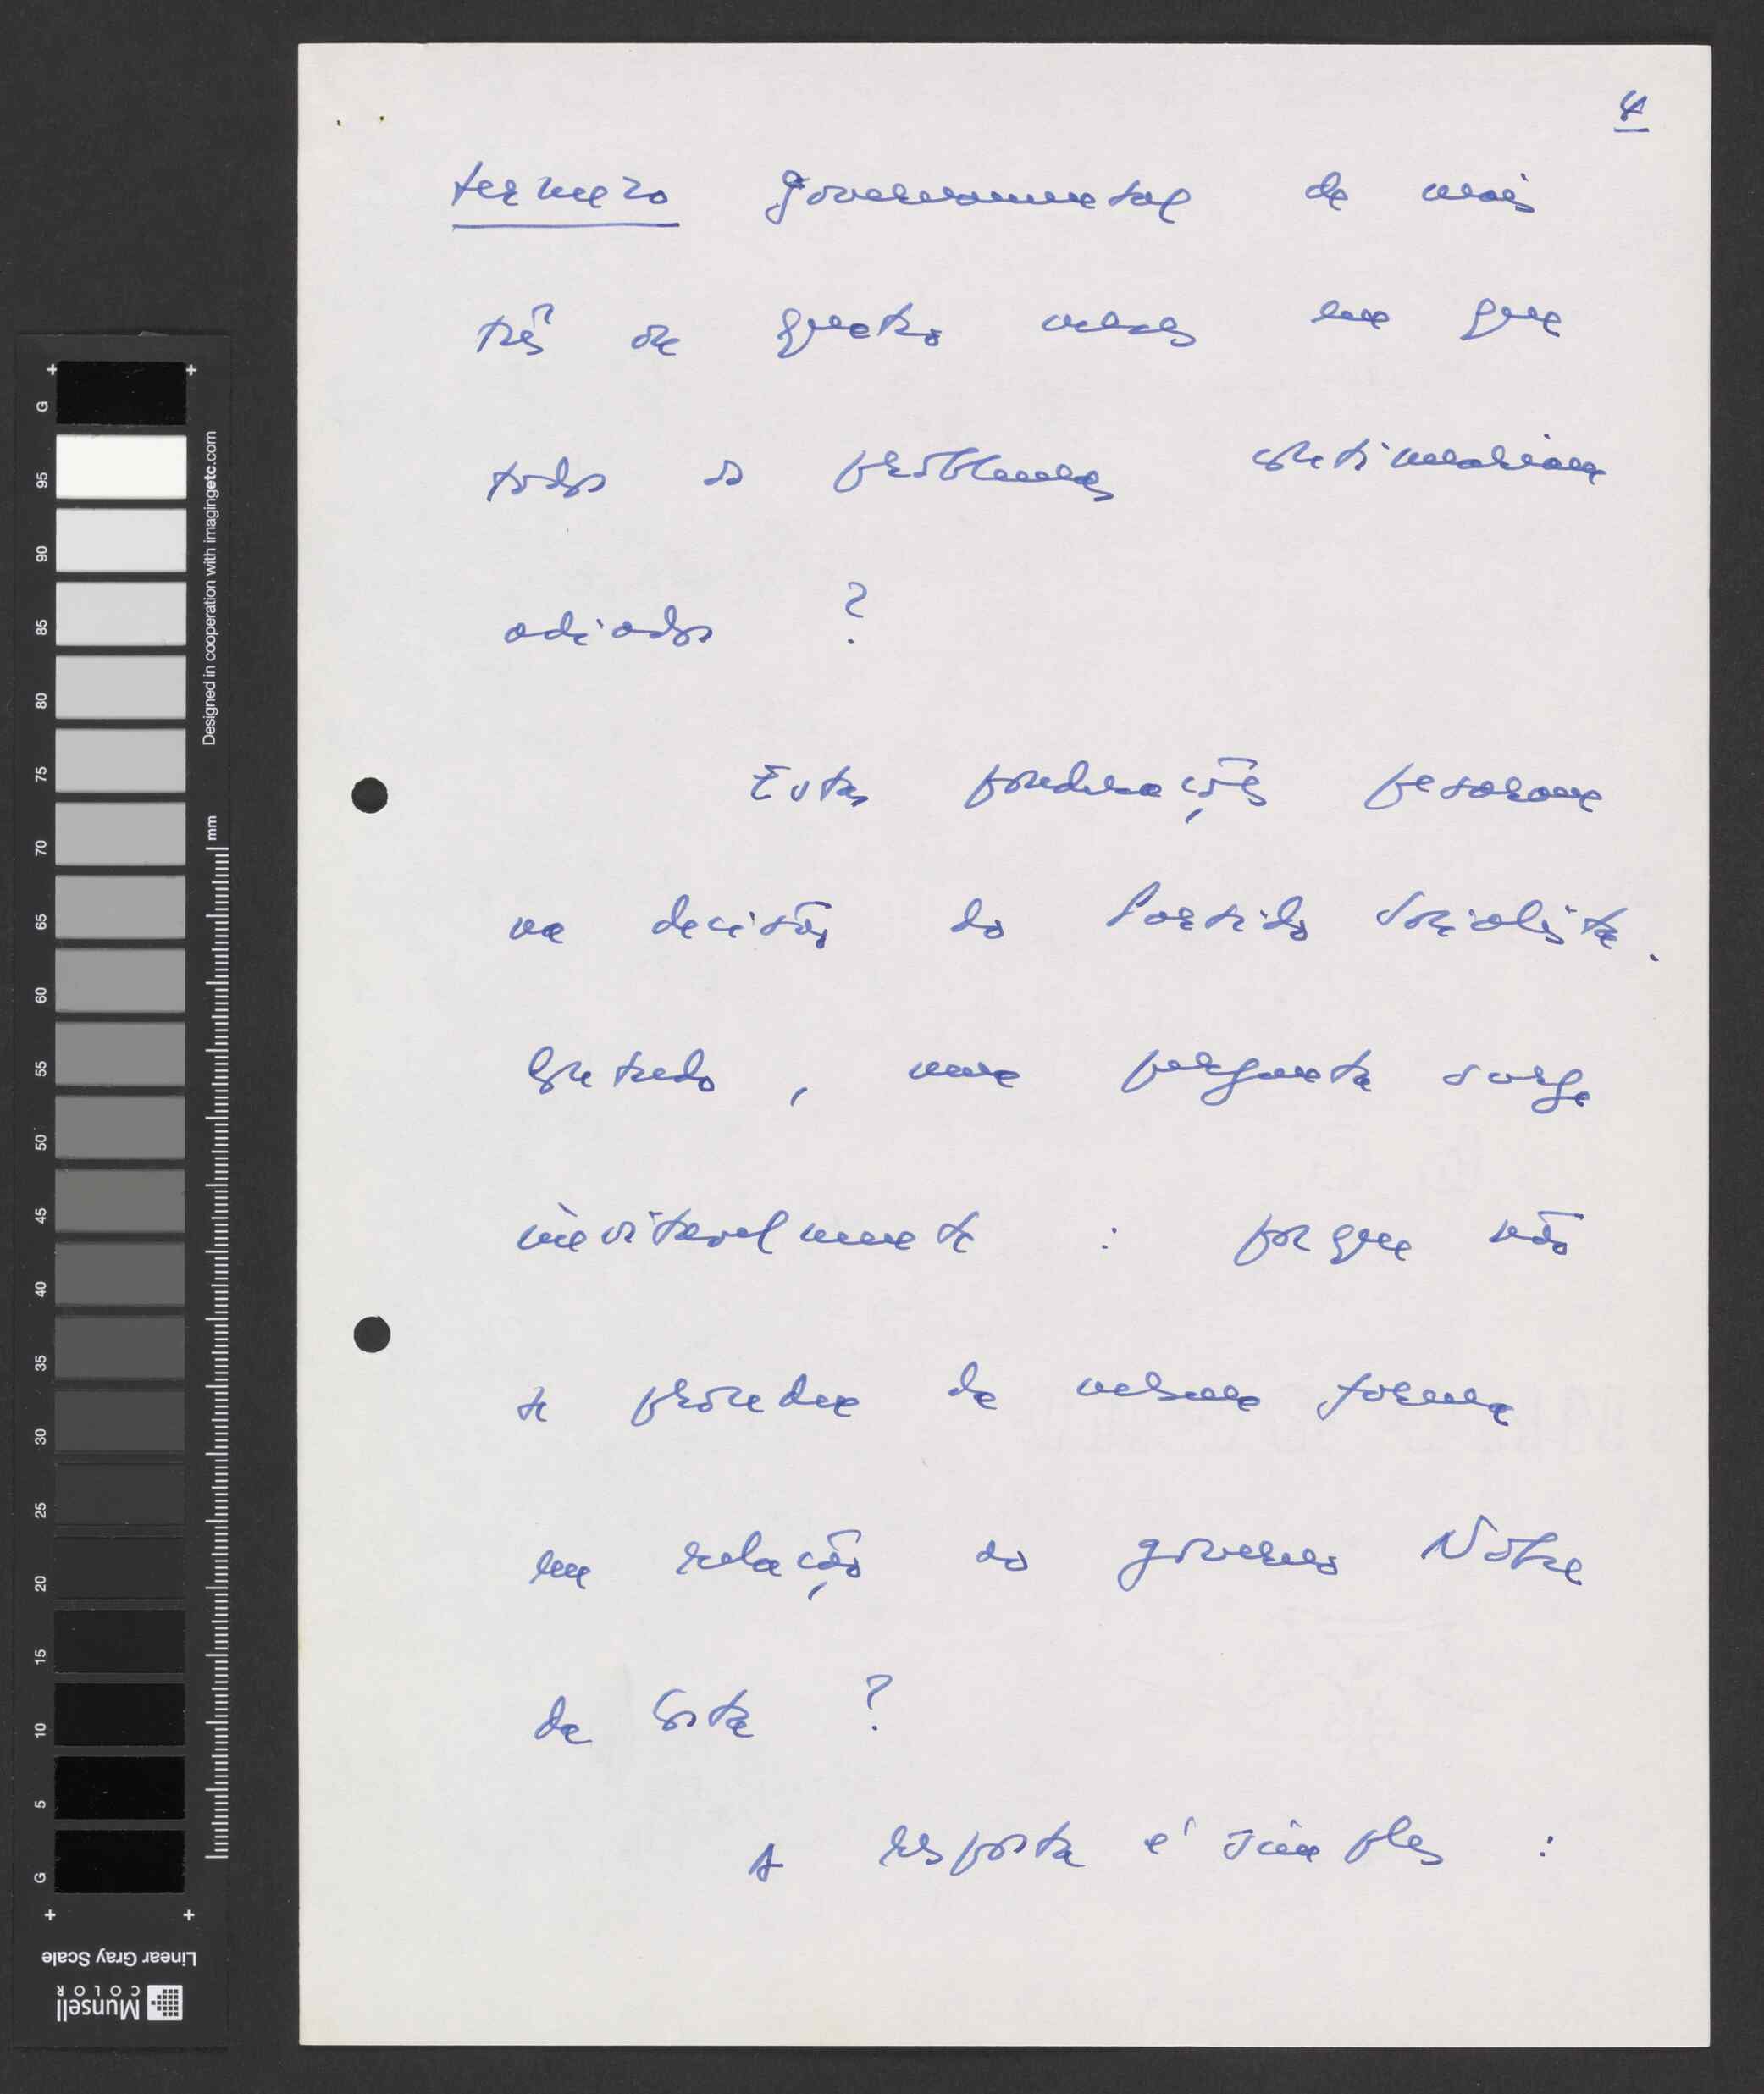 4
governamental de mais
três ou quatro meses em que
todos os problemas continuariam
adiados ?
Estas ponderações pesaram
na decisão do Partido Socialista.
Contudo, uma pergunta surge
inevitavelmente : porque não
se procedeu da mesma forma
em relação ao governo Nobre
da Costa ?
A resposta é simples :
G
95
90
85
80
75
70
65
60
55
50
45
40
35
30
25
20
15
10
5
G
Designed in cooperation with imagingetc.com
mm
Linear Gray Scale
Munsell
COLOR